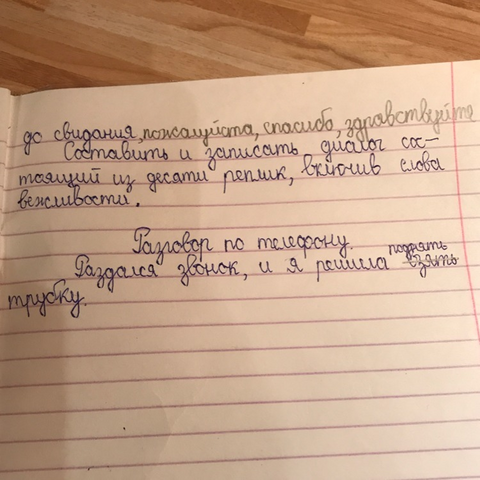 до свидания, пожалуйста, спасибо, здравствуйте
Составить и записать диалог сос-
тоящий из десати реплик, включив слова
вежливости.
Разговор по телефону.
поднять
Раздался звонок, и я решила взять
трубку.